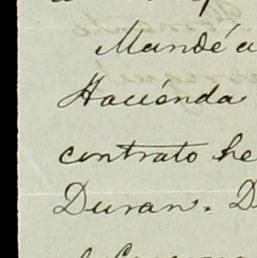 Mandé a
Haciénda
contrato he
Duran. D